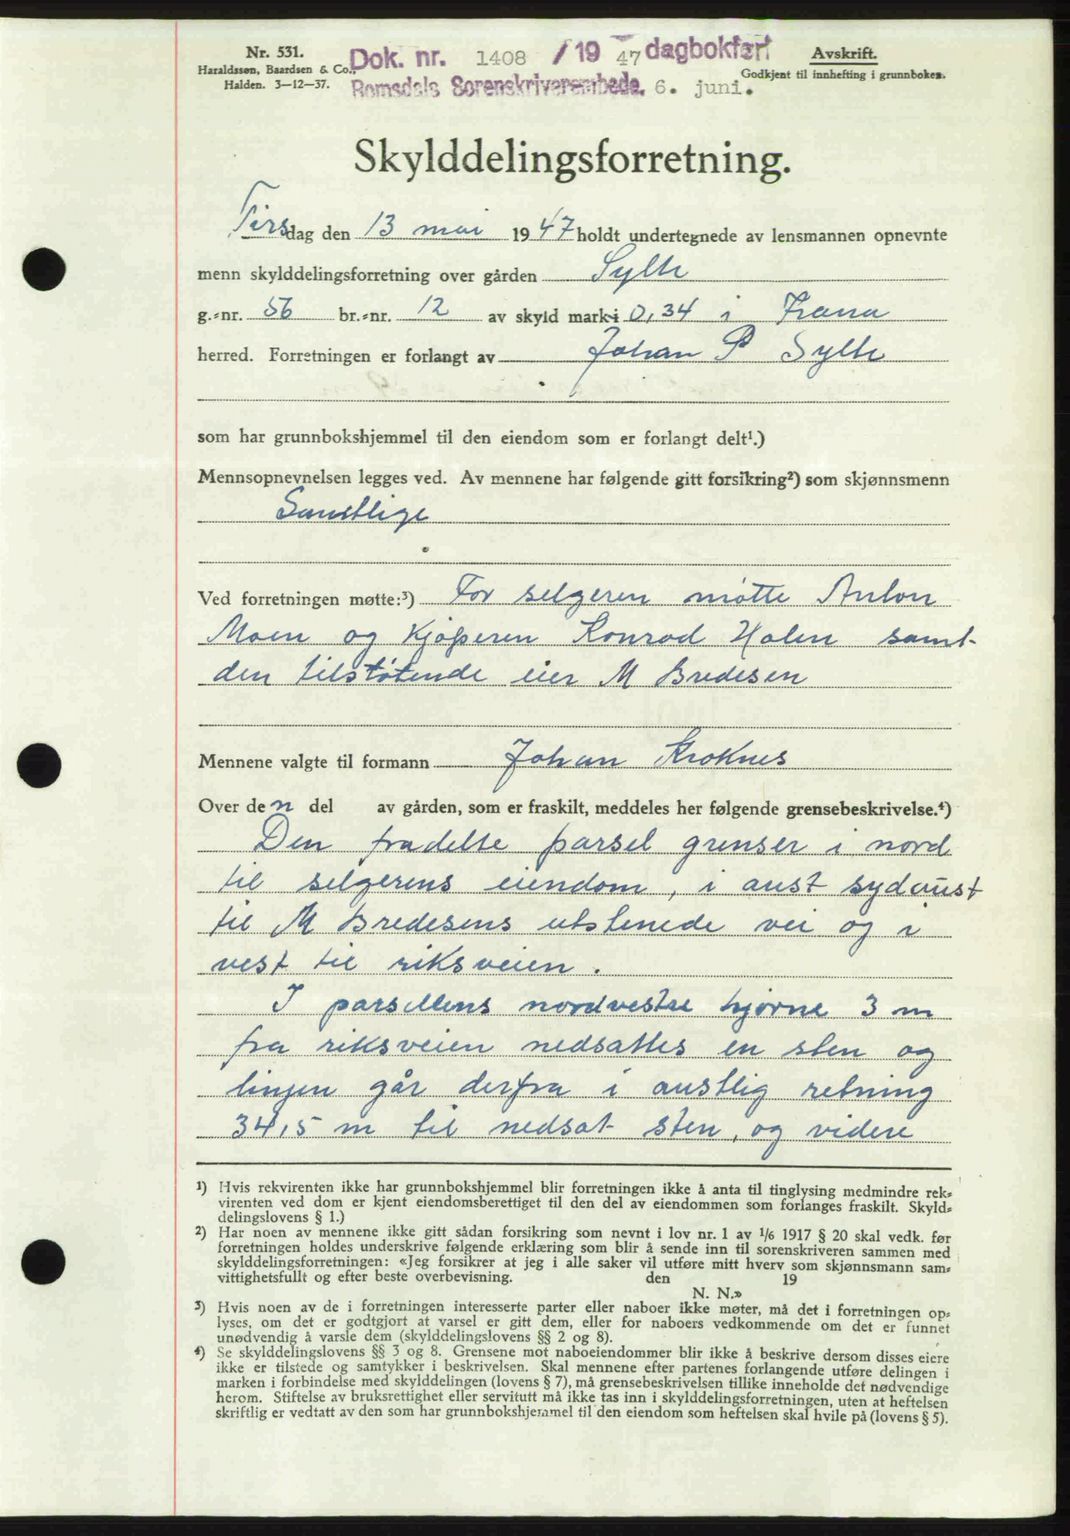 Nr. 531.
Haraldssøn, Baardsen & Co.,
Halden. 3—12—37.
Dok. nr. 1408 / 19 47 dagbokført
Romsdals Sorenskriverembede. 6. juni.
Avskrift.
Godkjent til innhefting i grunnboken.
Skylddelingsforretning.
Tirsdag den 13 mai 1947 holdt undertegnede av lensmannen opnevnte
menn skylddelingsforretning over gården Sylte
g.-nr. 56 br.-nr. 12 av skyld mark 0,34 i Frana
herred. Forretningen er forlangt av Johan P Sylte
som har grunnbokshjemmel til den eiendom som er forlangt delt¹.)
Mennsopnevnelsen legges ved. Av mennene har følgende gitt forsikring²) som skjønnsmenn
Samtlige
Ved forretningen møtte:³) For selgeren møtte Anton
Moen og kjøperen Konrad Holen samt
den tilstøtende eier M Bredesen
Mennene valgte til formann Johan Kroknes
Over den del av gården, som er fraskilt, meddeles her følgende grensebeskrivelse.⁴)
Den fradelte parsel grenser i nord
til selgerens eiendom, i aust sydaust
til M Bredesens utstenede vei og i
vest til riksveien.
I parsellens nordvestre hjørne 3 m
fra riksveien nedsattes en sten og
linjen går derfra i austlig retning
34,5 m til nedsat sten, og videre
¹) Hvis rekvirenten ikke har grunnbokshjemmel blir forretningen ikke å anta til tinglysing medmindre rek-
virenten ved dom er kjent eiendomsberettiget til den del av eiendommen som forlanges fraskilt. Skyld-
delingslovens § 1.)
²) Har noen av mennene ikke gitt sådan forsikring som nevnt i lov nr. 1 av 1/6 1917 § 20 skal vedk. før
forretningen holdes underskrive følgende erklæring som blir å sende inn til sorenskriveren sammen med
skylddelingsforretningen: «Jeg forsikrer at jeg i alle saker vil utføre mitt hverv som skjønnsmann sam-
vittighetsfullt og efter beste overbevisning. den 19
N. N.»
³) Hvis noen av de i forretningen interesserte parter eller naboer ikke møter, må det i forretningen op-
lyses, om det er godtgjort at varsel er gitt dem, eller for naboers vedkommende om det er funnet
unødvendig å varsle dem (skylddelingslovens §§ 2 og 8).
⁴) Se skylddelingslovens §§ 3 og 8. Grensene mot naboeiendommer blir ikke å beskrive dersom disses eiere
ikke er tilstede og samtykker i beskrivelsen. Skal mennene efter partenes forlangende utføre delingen i
marken i forbindelse med skylddelingen (lovens § 7), må grensebeskrivelsen tillike inneholde det nødvendige
herom. Stiftelse av bruksrettighet eller servitutt må ikke tas inn i skylddelingsforretningen, uten at heftelsen
skriftlig er vedtatt av den som har grunnbokshjemmel til den eiendom som heftelsen skal hvile på (lovens § 5).